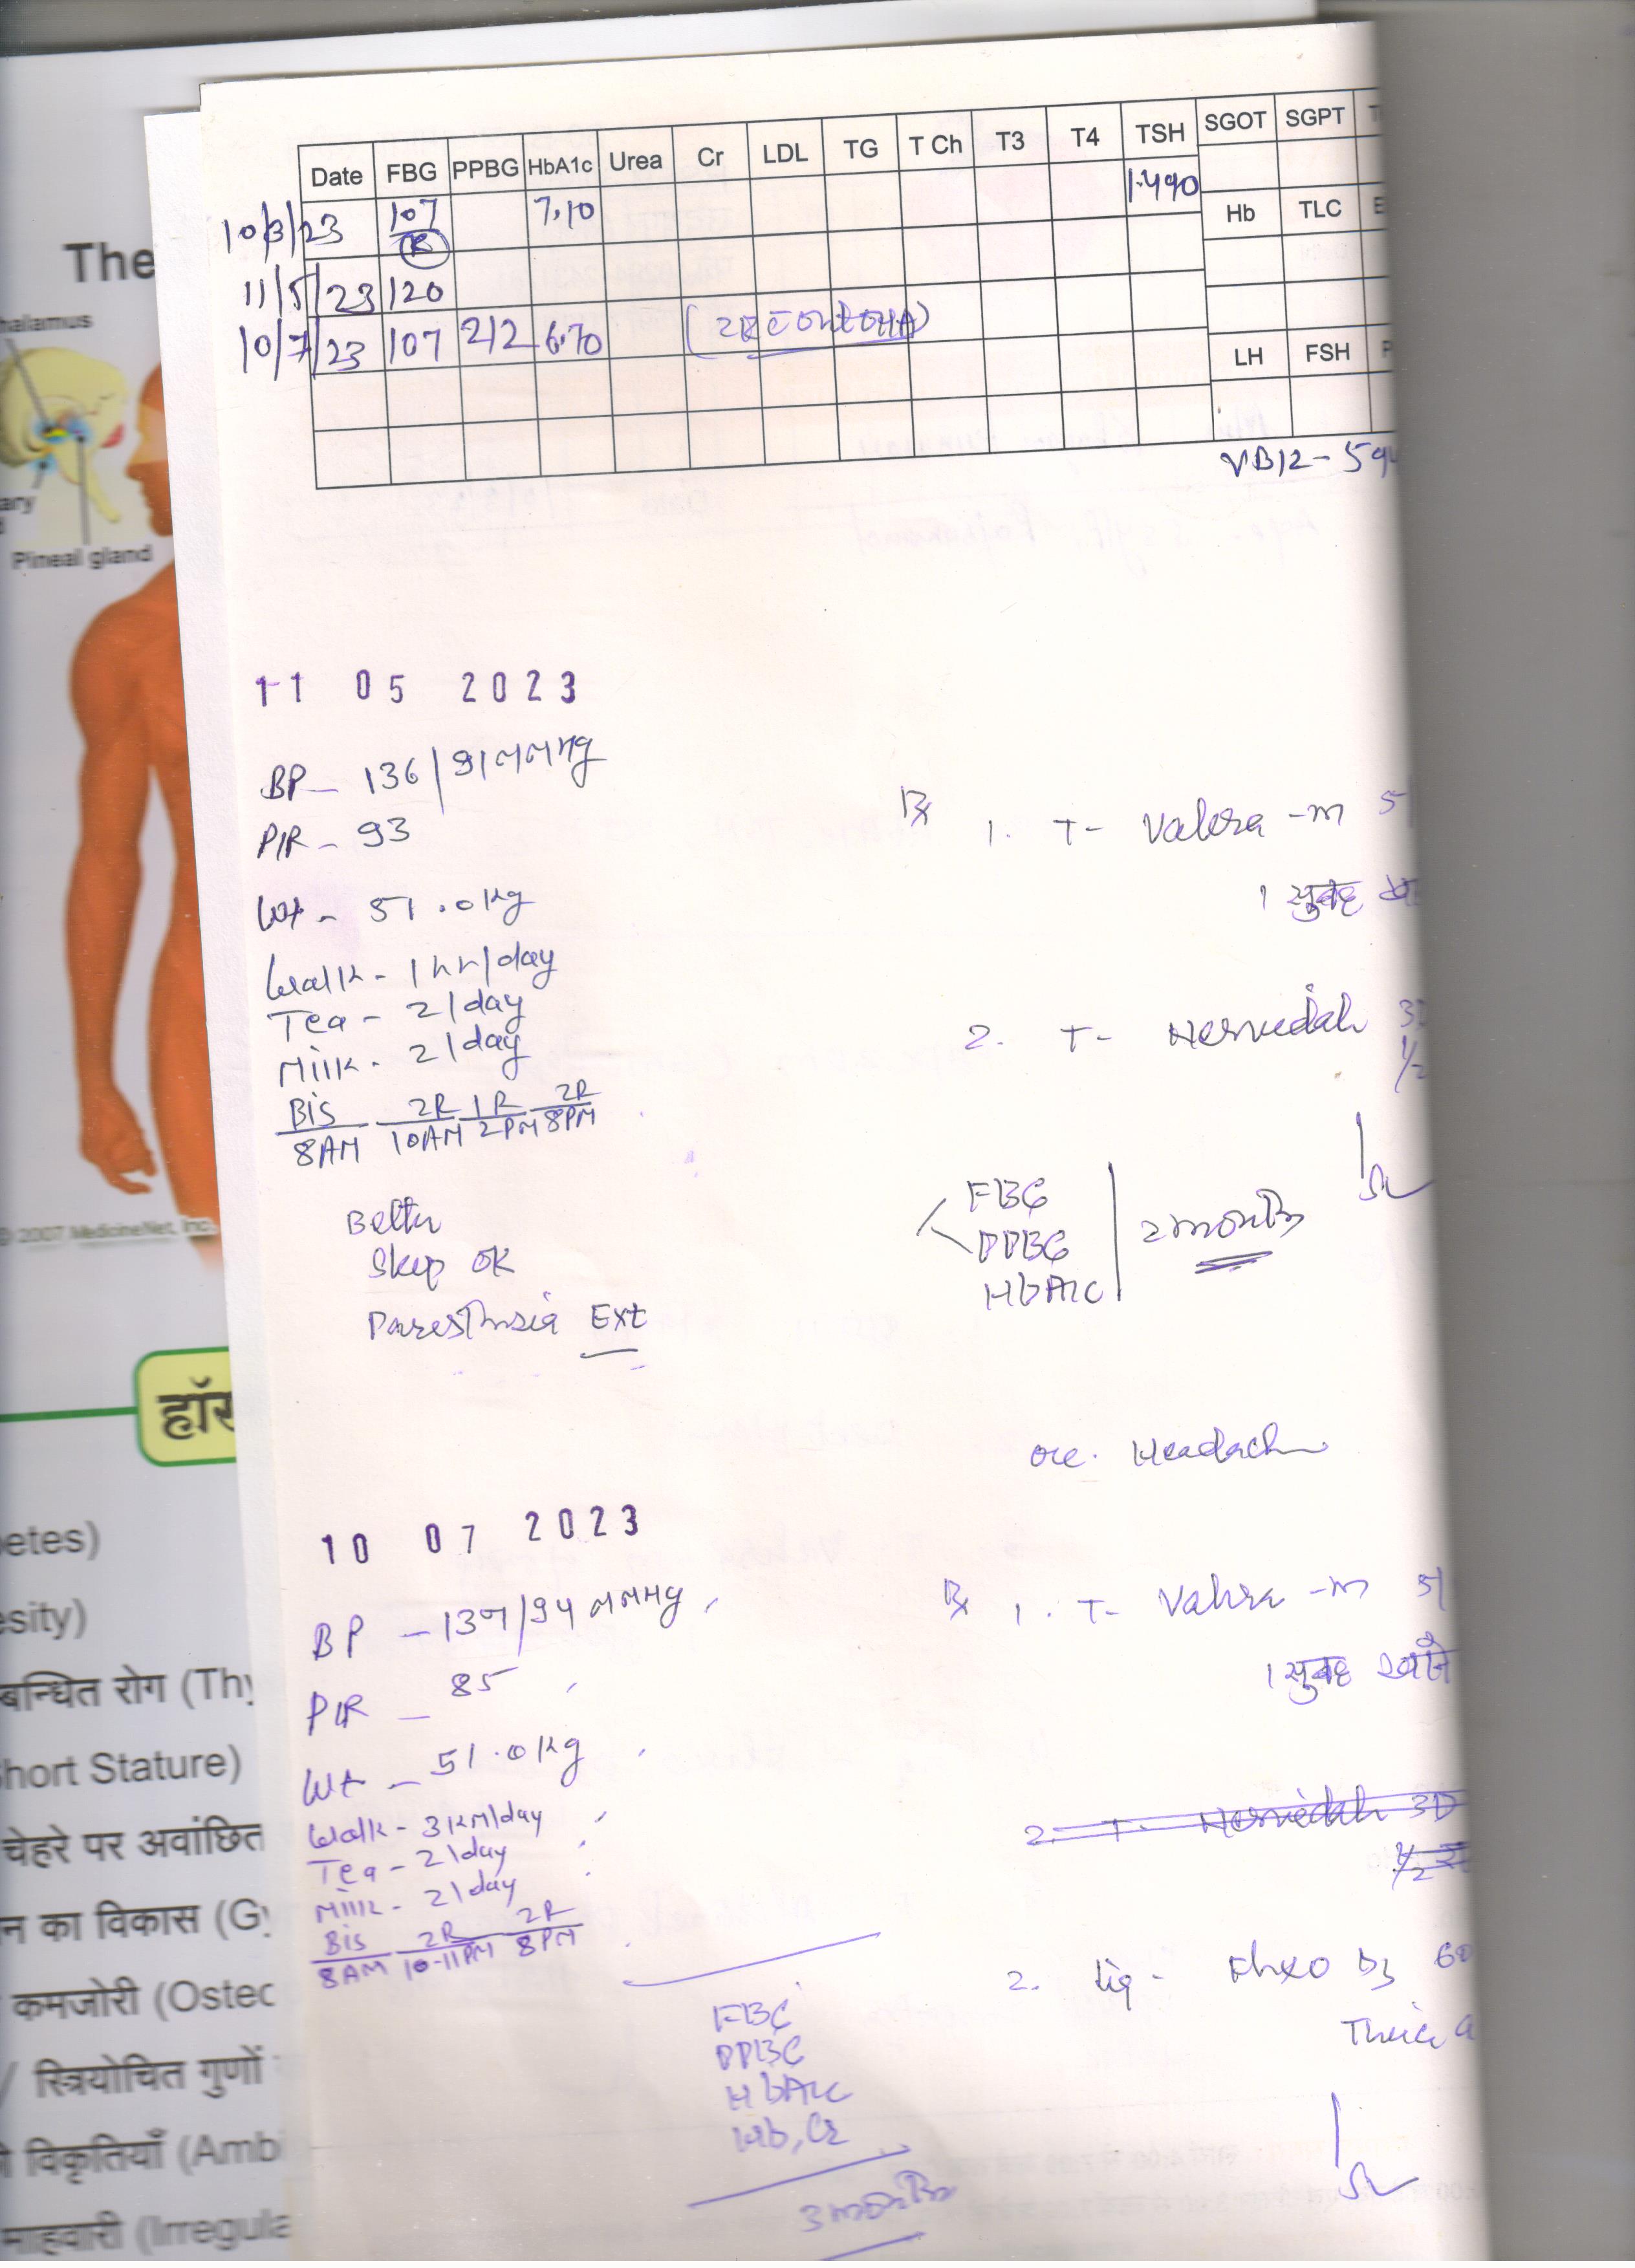 Date FBG PPBG HbA1c Urea Cr LDL TG T Ch T3 T4 TSH SGOT SGPT
10/3/23 107 7.10 1.490
Hb TLC
11/5/23 120
10/7/23 107 212 6.70
LH FSH
VB12-594
The
halamus
ary
Pineal gland
© 2007 MedicineNet, Inc.
हॉर
etes)
esity)
बन्धित रोग (Thy
hort Stature)
चेहरे पर अवांछित
न का विकास (Gy
कमजोरी (Osteo
/ स्त्रियोचित गुणों
विकृतियाँ (Ambi
माहवारी (Irregula
11 05 2023
BP - 136/91 mmHg
P/R - 93
Wt - 51.0 kg
Walk - 1 hr/day
Tea - 2/day
Milk - 2/day
Bis 2R 1R 2R
8AM 10AM 2PM 8PM
Better
Sleep OK
Paresthesia Ext
Rx
1. T- -M 5/
1 सुबह
2. T- 3D
1/2
FBG
PPBG
HbA1c
2 months
occ. Headache
10 07 2023
BP - 137/94 mmHg
P/R - 85
Wt - 51.0 kg
Walk - 3KM/day
Tea - 2/day
Milk - 2/day
Bis 2R 2R
8AM 10-11PM 8PM
Rx
1. T- -M 5/
1 सुबह खाने
2. T- 3D
1/2
2. Liq - D3 60
FBG
PPBG
HbA1c
3 months